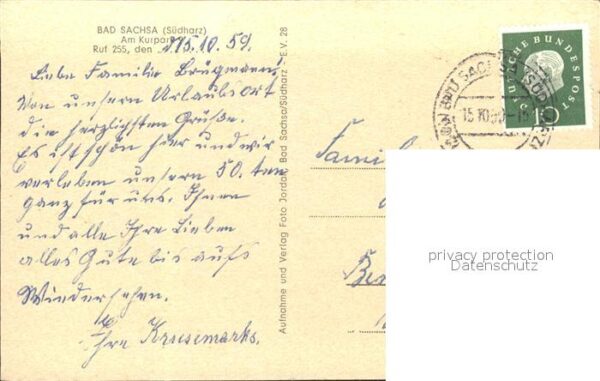 BAD SACHSA (Südharz)
Am Kurpark
Ruf 255, den 15.10.59.
Liebe Familie Brügmann!
Von unserm Urlaubsort
die herzlichsten Grüße.
Es ist schön hier und wir
verleben unsern 50. ten
ganz für uns. Ihnen
und alle Ihre Lieben
alles Gute bis aufs
Wiedersehen.
Ihre Krusemarks.
Aufnahme und Verlag Foto Jordan, Bad Sachsa/Südharz E.V. 28
DEUTSCHE BUNDESPOST
10
BAD SACHSA (SÜDHARZ)
Fami
privacy protection
Datenschutz